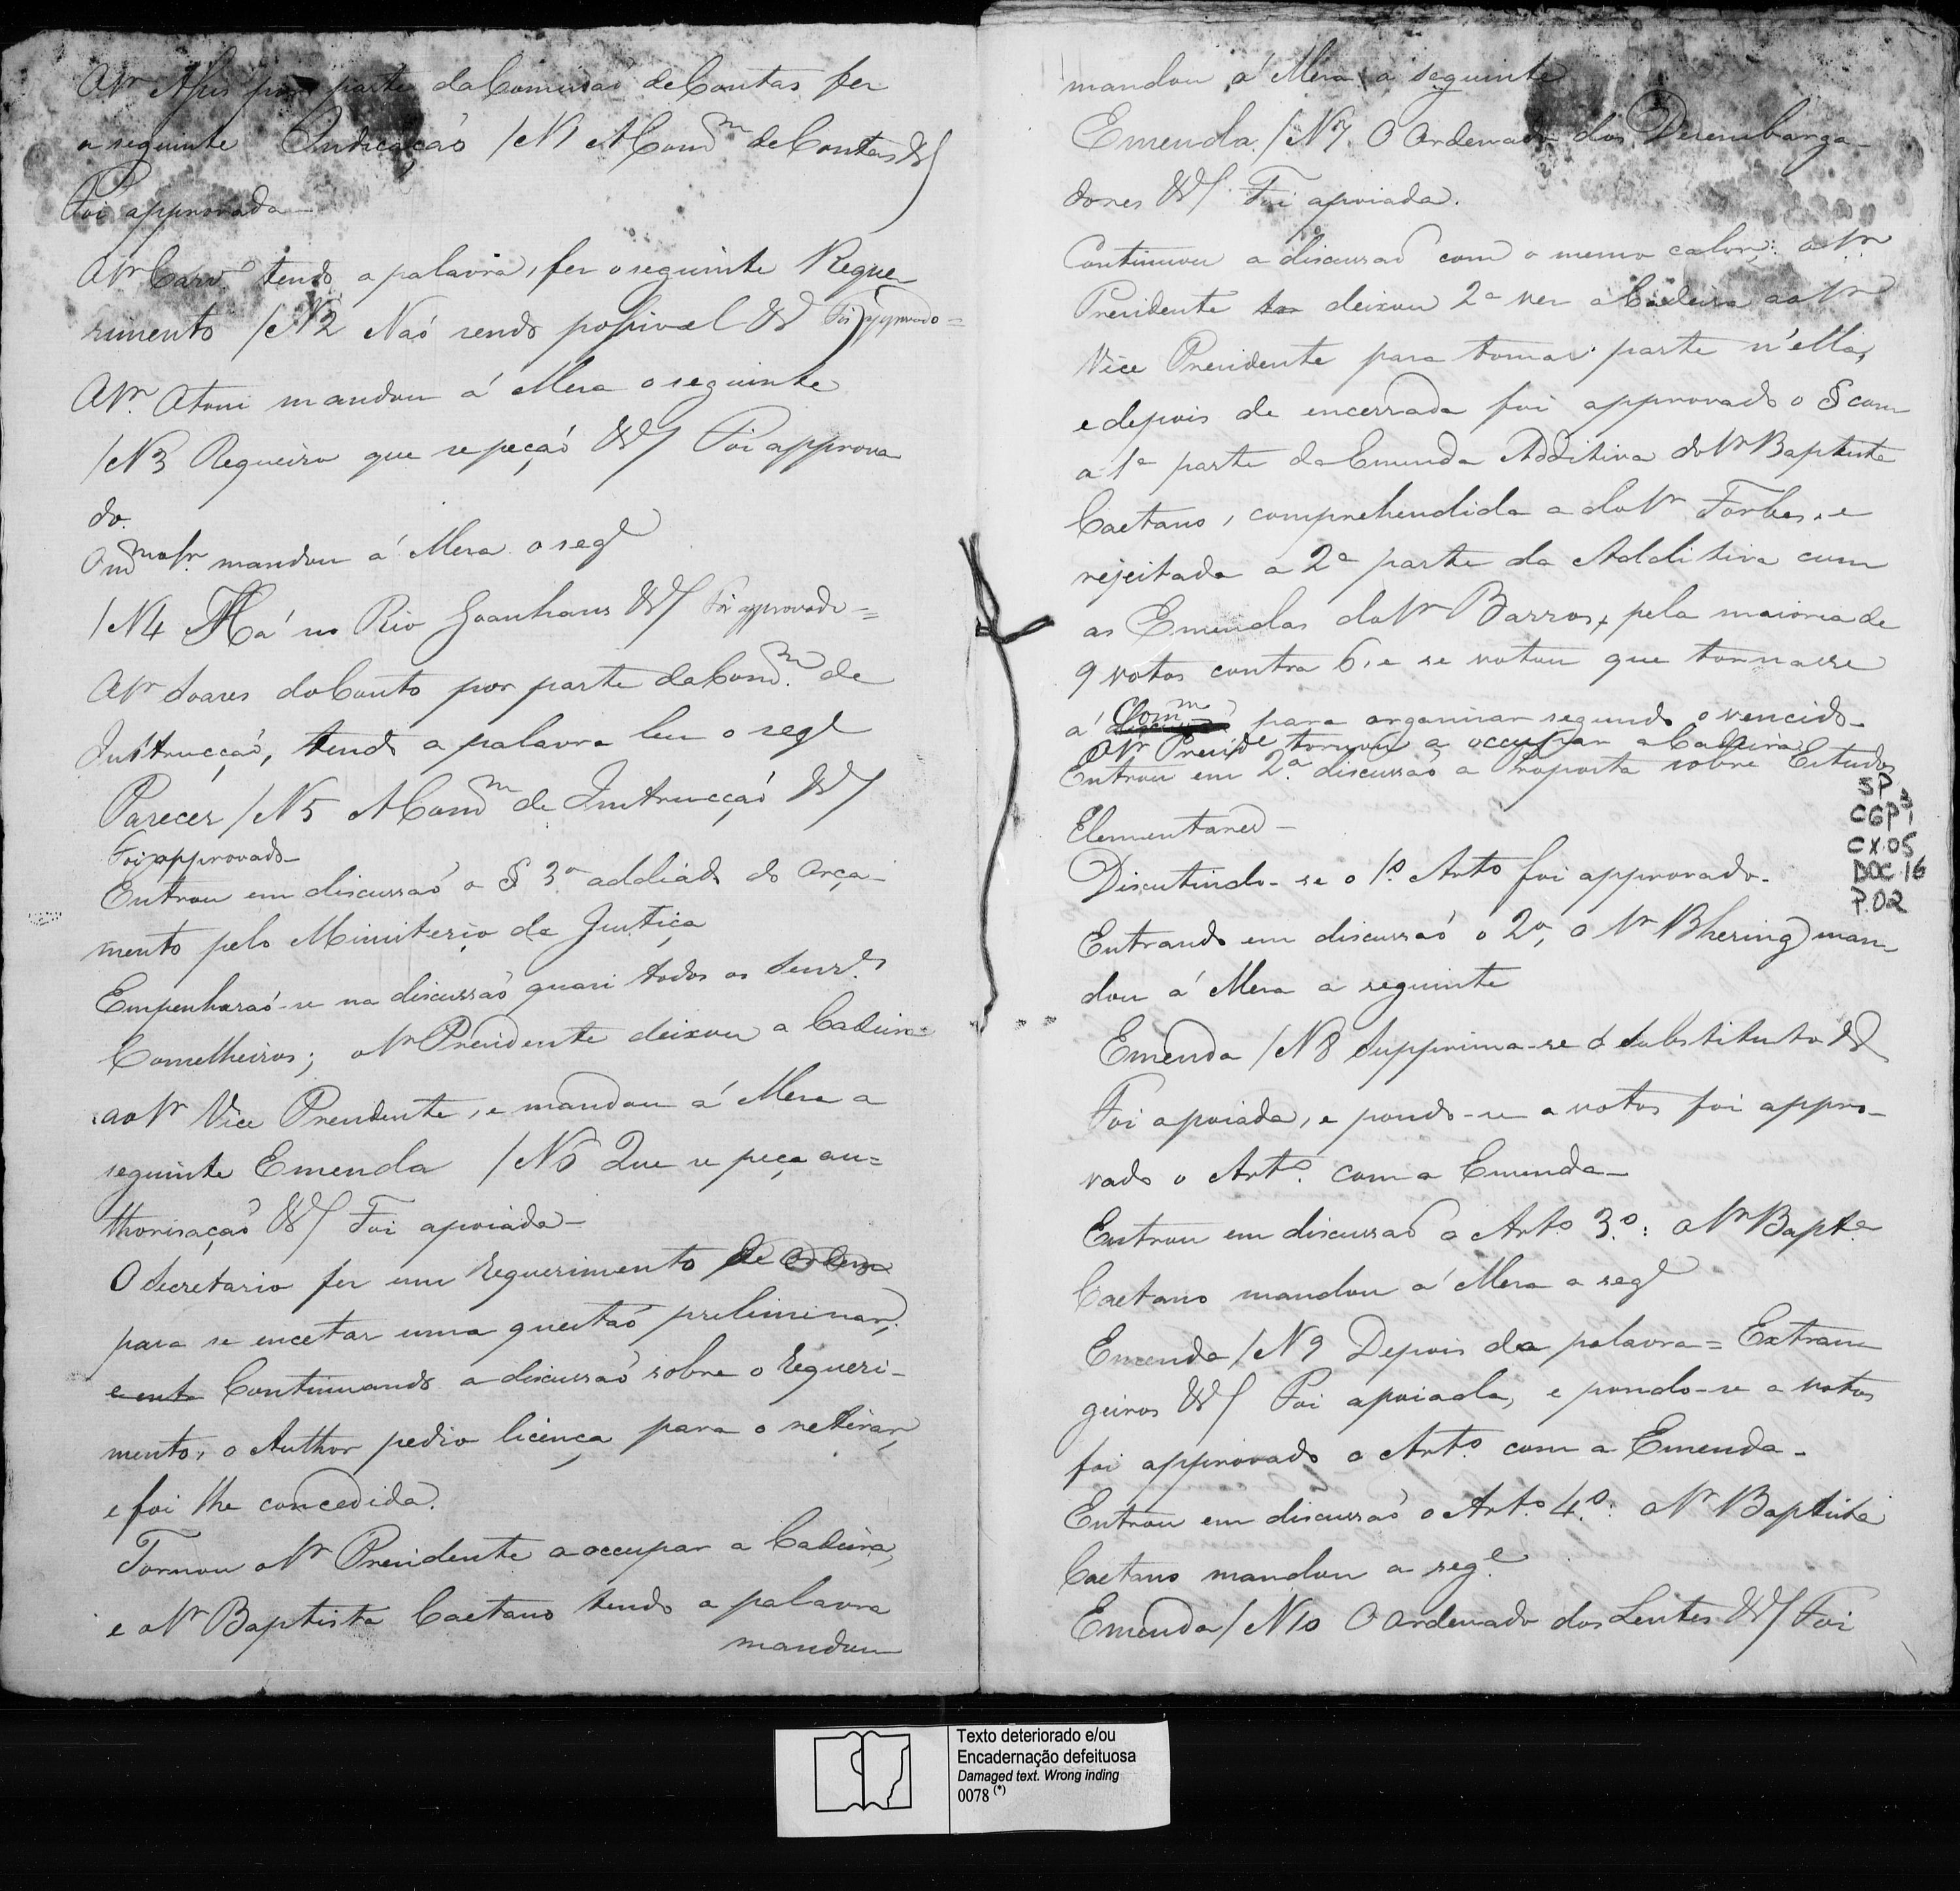 O Sr Assis por parte da Comissaõ de Contas fez
a seguinte Indicaçaõ /N1 A Comm de Contas &/
Foi approvada
O Sr Carvo tendo a palavra, fez o seguinte Reque
rimento /N2 Naõ sendo possivel & Foi approvado =
O Sr. Otoni mandou á Meza o seguinte
/N3 Requeiro que se peçaõ &/ Foi approva
do.
O mmo Sr. mandou á Meza o sege
/N4 Há no Rio &/ Foi approvado =
O Sr Soares do Couto por parte da Comm. de
Instrucçaõ, tendo a palavra leu o sege
Parecer /N5 A Comm de Instrucçaõ &/
Foi approvado
Entrou em discussaõ o § 3.o addiado do Orça-
mento pelo Ministerio da Justiça
Empenharaõ-se na discussaõ quasi todos os Senres
Conselheiros; o Sr Presidente deixou a Cadeira
ao Sr Vice Presidente, e mandou á Meza a
seguinte Emenda /N6 Que se peça au=
thorisaçaõ &/ Foi apoiada
O Secretario fez um Requerimento de Ordem
para se encetar uma questaõ preliminar;
Continuando a discussaõ sobre o Requeri-
mento, o Author pedio licença para o retirar,
e foi lhe concedida.
Tornou o Sr Presidente a occupar a Cadeira,
e o Sr Baptista Caetano tendo a palavra
mandou
mandou á Meza a seguinte
Emenda /N7. O Ordenado dos Desembarga-
dores &/ Foi apoiada.
Continuou a discussaõ com o mesmo calor; o Sr
Presidente deixou 2a vez a Cadeira ao Sr
Vice Presidente para tomar parte n'ella,
e depois de encerrada foi approvado o § com
a 1a parte da Emenda Additiva do Sr Baptista
Caetano, comprehendida a do Sr Forbes, e
rejeitada a 2a parte da Additiva com
as Emendas do Sr Barros, pela maioria de
9 votos contra 6, e se votou que tornasse
á Comm para organisar segundo o vencido
O Sr Preside tornou a occupar a Cadeira
Entrou em 2.a discussaõ a Proposta sobre Estudos
Elementares
SP
CGP 3
CX.05
DOC.16
P.02
Discutindo-se o 1.o Arto foi approvado.
Entrando em discussaõ o 2o, o Sr Bhering man-
dou á Meza a seguinte
Emenda /N8 Supprima-se o Substituto &
Foi apoiada, e pondo-se a votos foi appro-
vado o Arto. com a Emenda
Entrou em discussaõ o Arto 3.o: o Sr Bapta
Caetano mandou á Meza a sege
Emenda /N9 Depois da palavra = Extran
geiros &/ Foi apoiada, e pondo-se a votos
foi approvado o Arto. com a Emenda.
Entrou em discussaõ o Arto. 4.o: o Sr Baptista
Caetano mandou a sege
Emenda /N10 O Ordenado dos Lentes &/ Foi
Texto deteriorado e/ou
Encadernação defeituosa
Damaged text. Wrong inding
0078 (*)